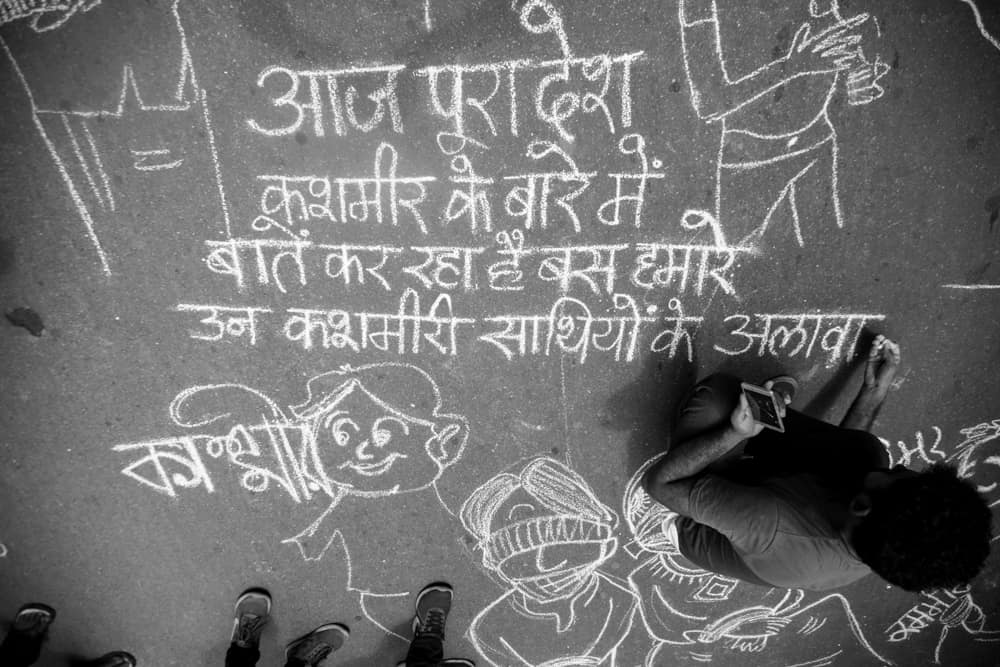 आज पूरा देश
कश्मीर के बारे में
बातें कर रहा है बस हमारे
उन कश्मीरी साथियों के अलावा